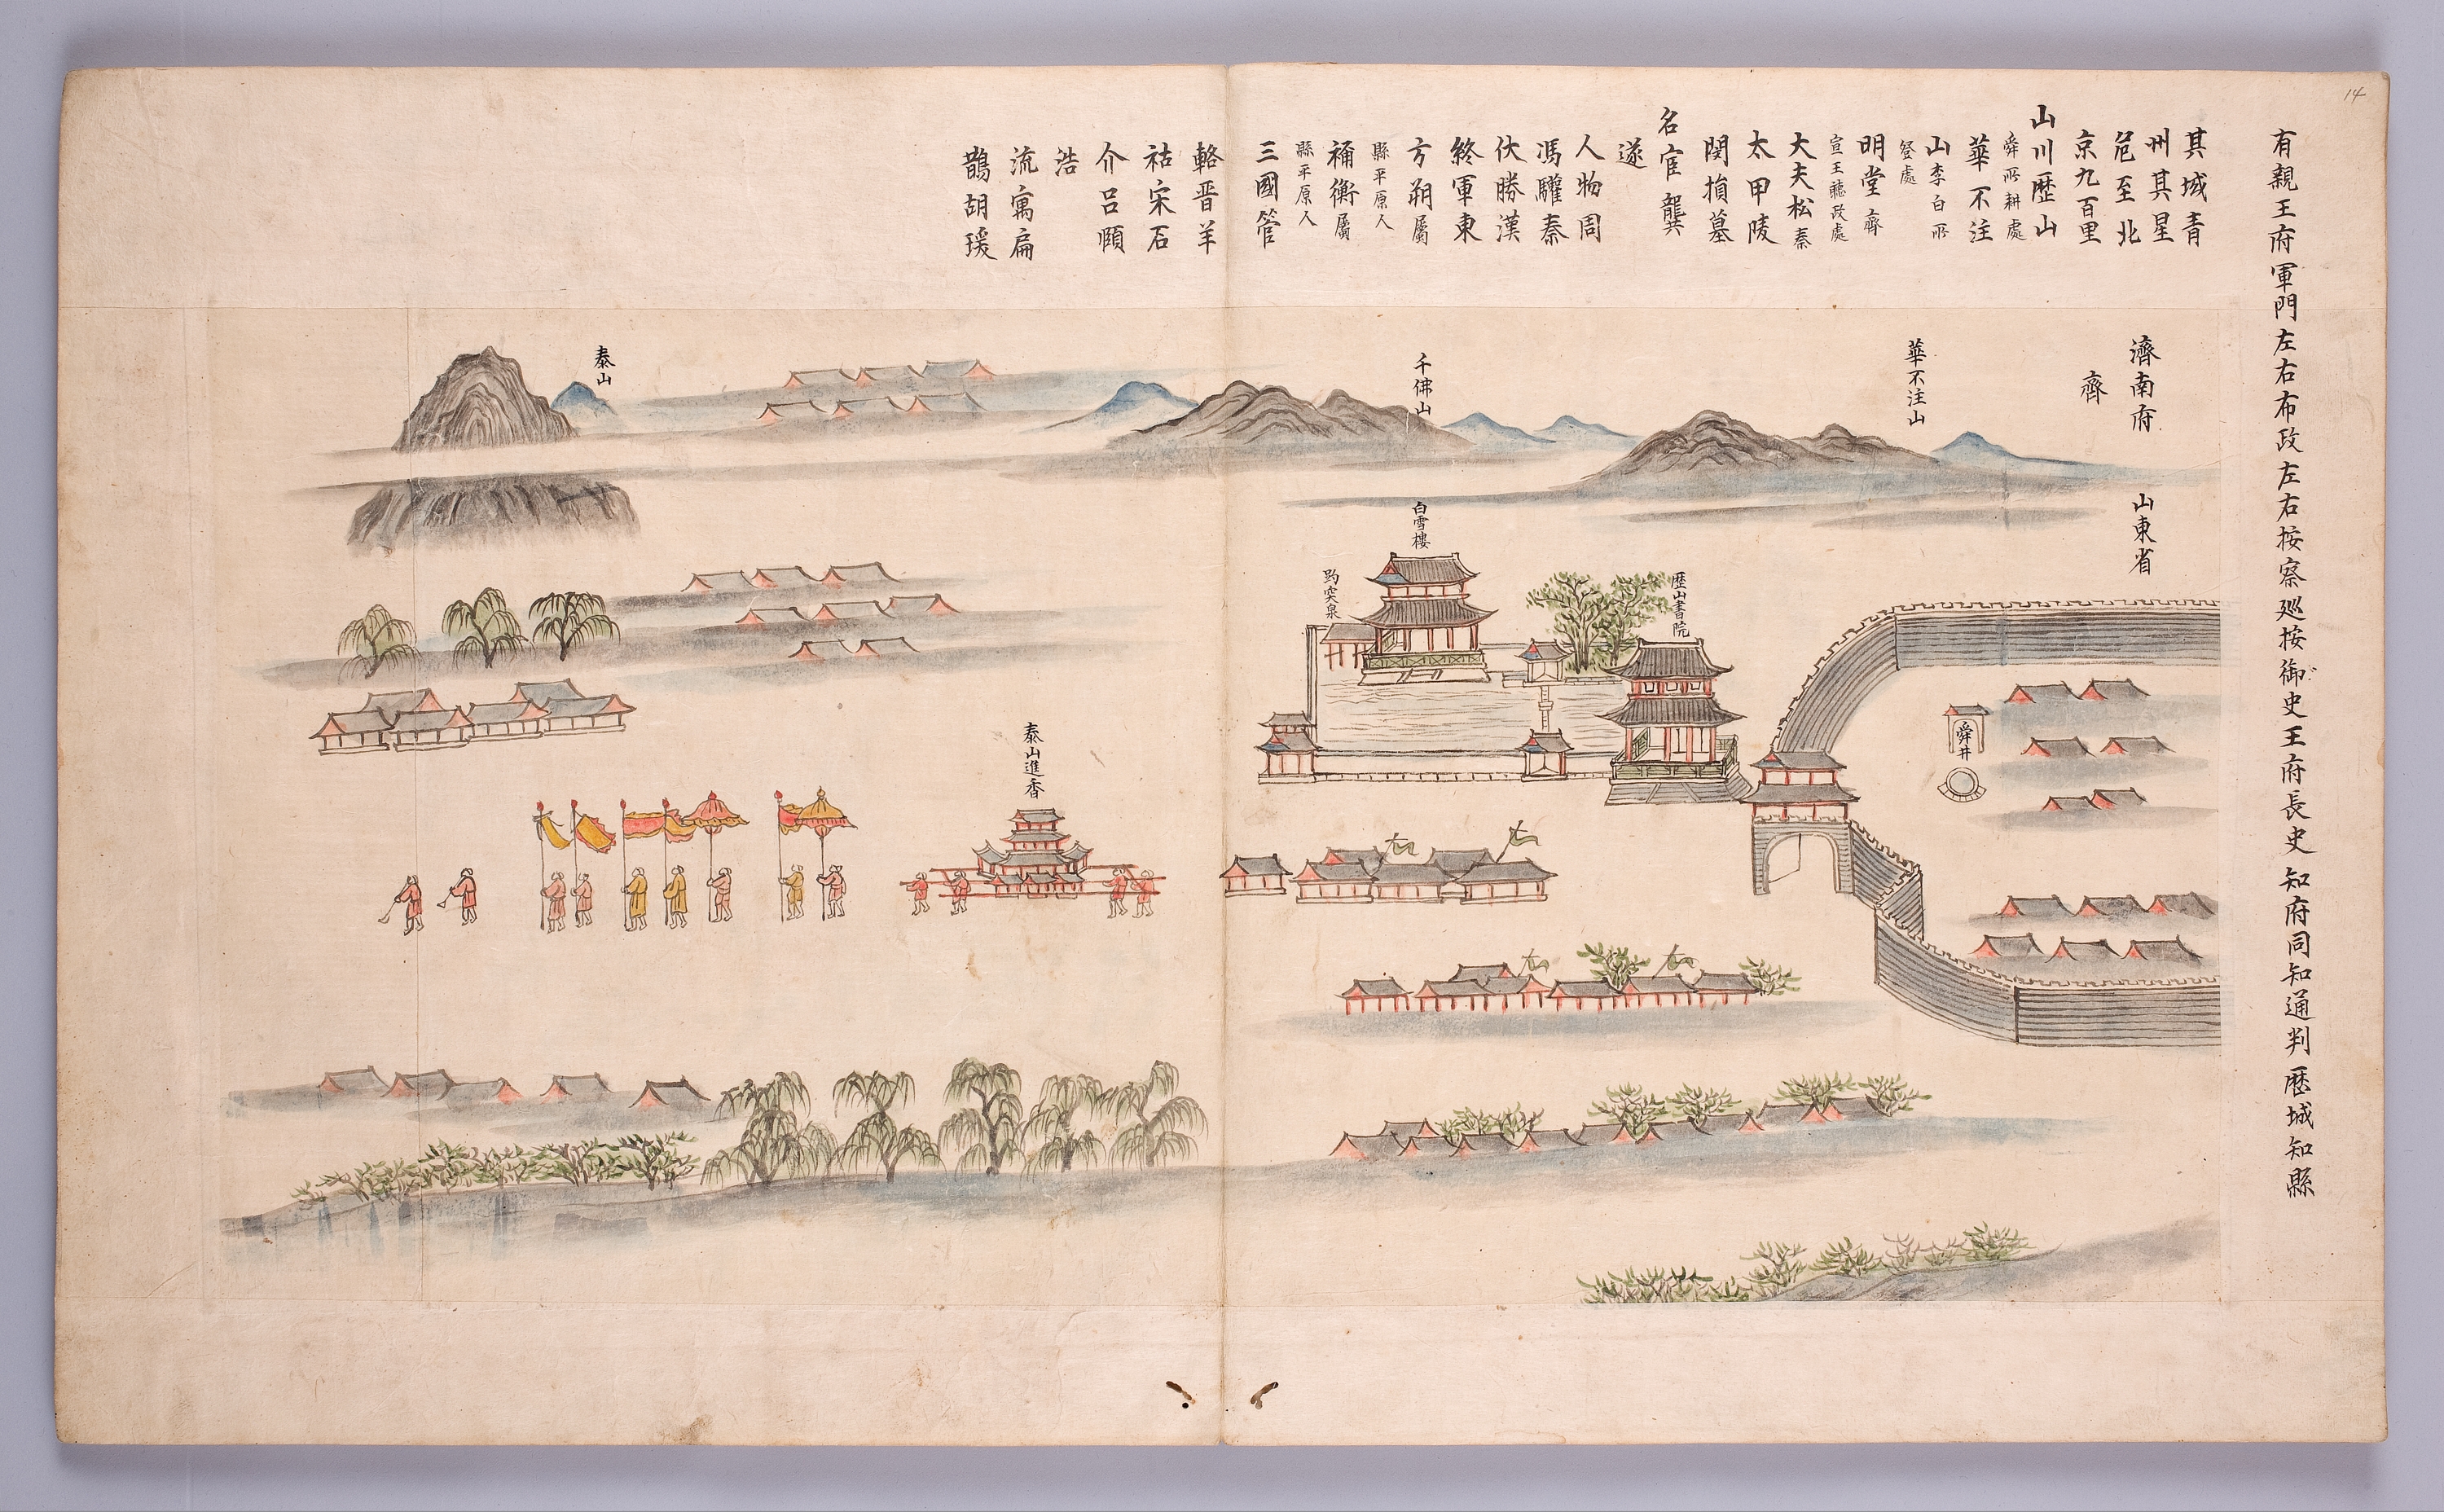 14
有親王府軍門左右布政左右按察巡按御史王府長史知府同知通判歷城知縣
其城青
州其星
危至北
京九百里
山川歷山
舜所耕處
華不注
山李白所
登處
明堂齊
宣王聽政處
大夫松秦
太甲陵
閔損墓
名宦龔
遂
人物周
馮驩秦
伏勝漢
終軍東
方朔屬
縣平原人
禰衡屬
縣平原人
三國管
輅晋羊
祜宋石
介呂頤
浩
流寓扁
鵲胡瑗
濟南府
齊
山東省
華不注山
千佛山
泰山
白雪樓
趵突泉
歷山書院
舜井
泰山進香